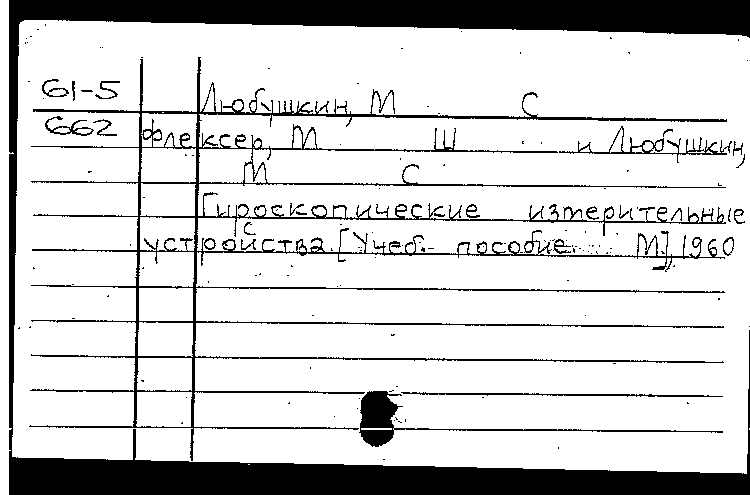 61-5 Любушкин, М С
662 Флексер, М Ш и Любушкин,
М С
Гироскопические измерительные
устройства. [Учеб. пособие М.], 1960